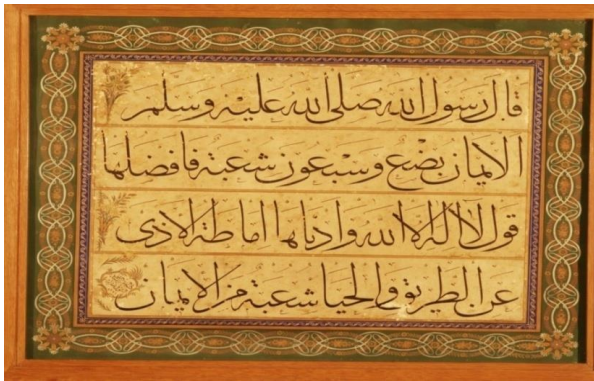 قال رسول الله صلى الله عليه وسلم
الايمان بضع وسبعون شعبة فافضلها
قول لا اله الا الله وادناها اماطة الاذى
عن الطريق والحيا شعبة من الايمان